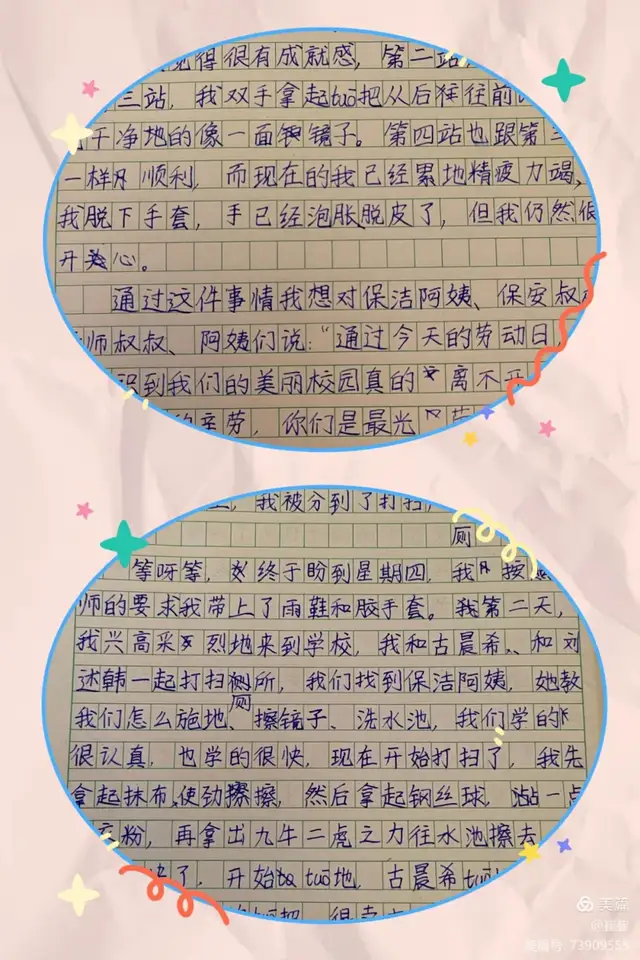 得很有成就感，第二站
三站，我双手拿起tuō把从后往前
干净地的像一面镜子。第四站也跟第三
一样顺利，而现在的我已经累地精疲力竭，
我脱下手套，手已经泡胀脱皮了，但我仍然很
开心。
通过这件事情我想对保洁阿姨、保安叔
师叔叔、阿姨们说：“通过今天的劳动日
识到我们的美丽校园真的离不开
的辛劳，你们是最光
我被分到了打扫
厕
等呀等，终于盼到星期四，我按
师的要求我带上了雨鞋和胶手套。我第二天，
我兴高采烈地来到学校，我和古晨希、和刘
述韩一起打扫厕所，我们找到保洁阿姨，她教
我们怎么施地、擦镜子、洗水池，我们学的
很认真，也学的很快，现在开始打扫了，我先
拿起抹布，使劲擦，然后拿起钢丝球，沾一点
粉，再拿出九牛二虎之力往水池擦去
了，开始tuō地，古晨希tuō
把，很
美篇
73909555